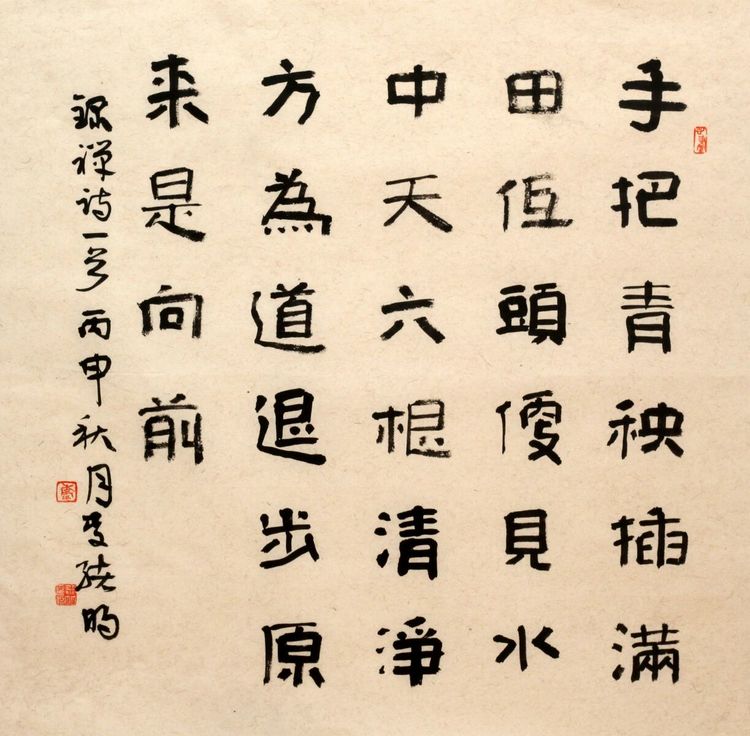 手把青秧插滿
田低頭便見水
中天六根清淨
方為道退步原
来是向前
録禅诗一首 丙申秋月